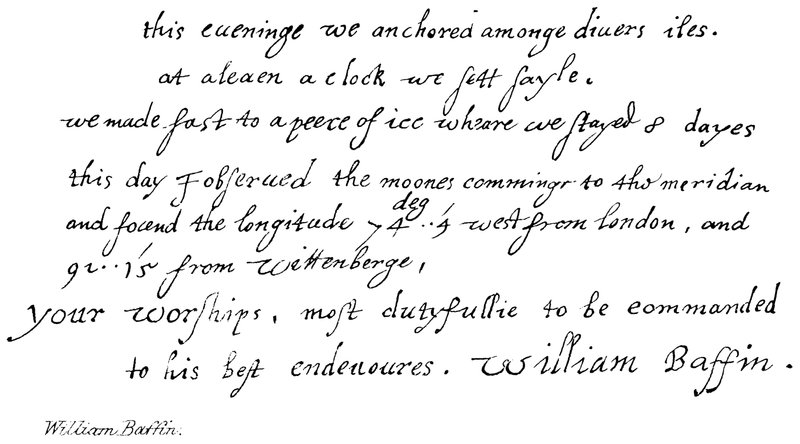 this eueninge we anchored amonge diuers iles.
at aleaen a clock we sett sayle.
we made fast to a peece of ice wheare we stayed 8 dayes
this day I obserued the moones comminge to the meridian
and found the longitude 74 deg..4′ west from london, and
92..15′ from Wittenberge,
your worships, most dutyfullie to be commanded
to his best endeuoures. William Baffin.
William Baffin.